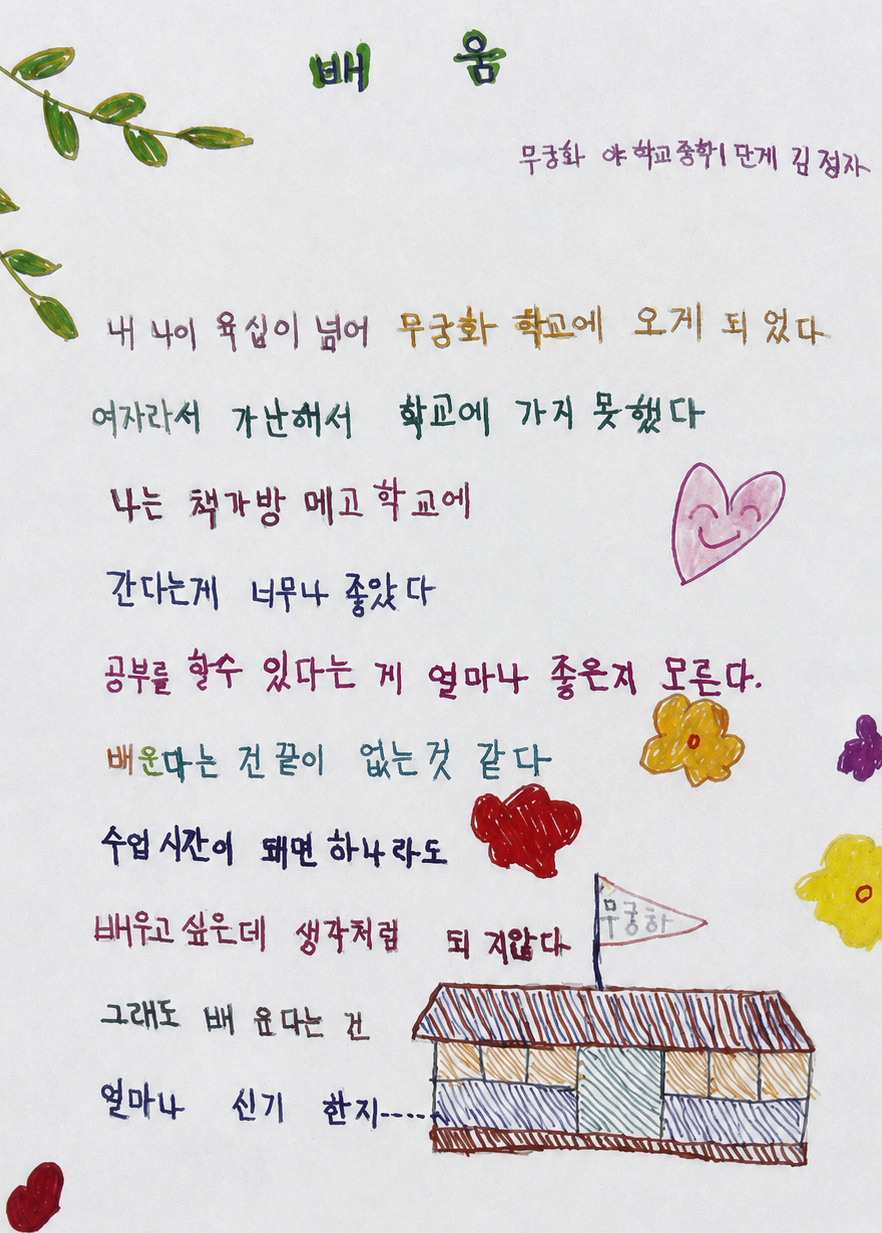 배움
무궁화 야학교중학1단계 김정자
내 나이 육십이 넘어 무궁화 학교에 오게 되었다
여자라서 가난해서 학교에 가지 못했다
나는 책가방 메고 학교에
간다는게 너무나 좋았다
공부를 할수 있다는 게 얼마나 좋은지 모른다.
배운다는 건 끝이 없는것 같다
수업시간이 돼면 하나라도
배우고 싶은데 생각처럼 되지않다
무궁하
그래도 배운다는 건
얼마나 신기 한지-----